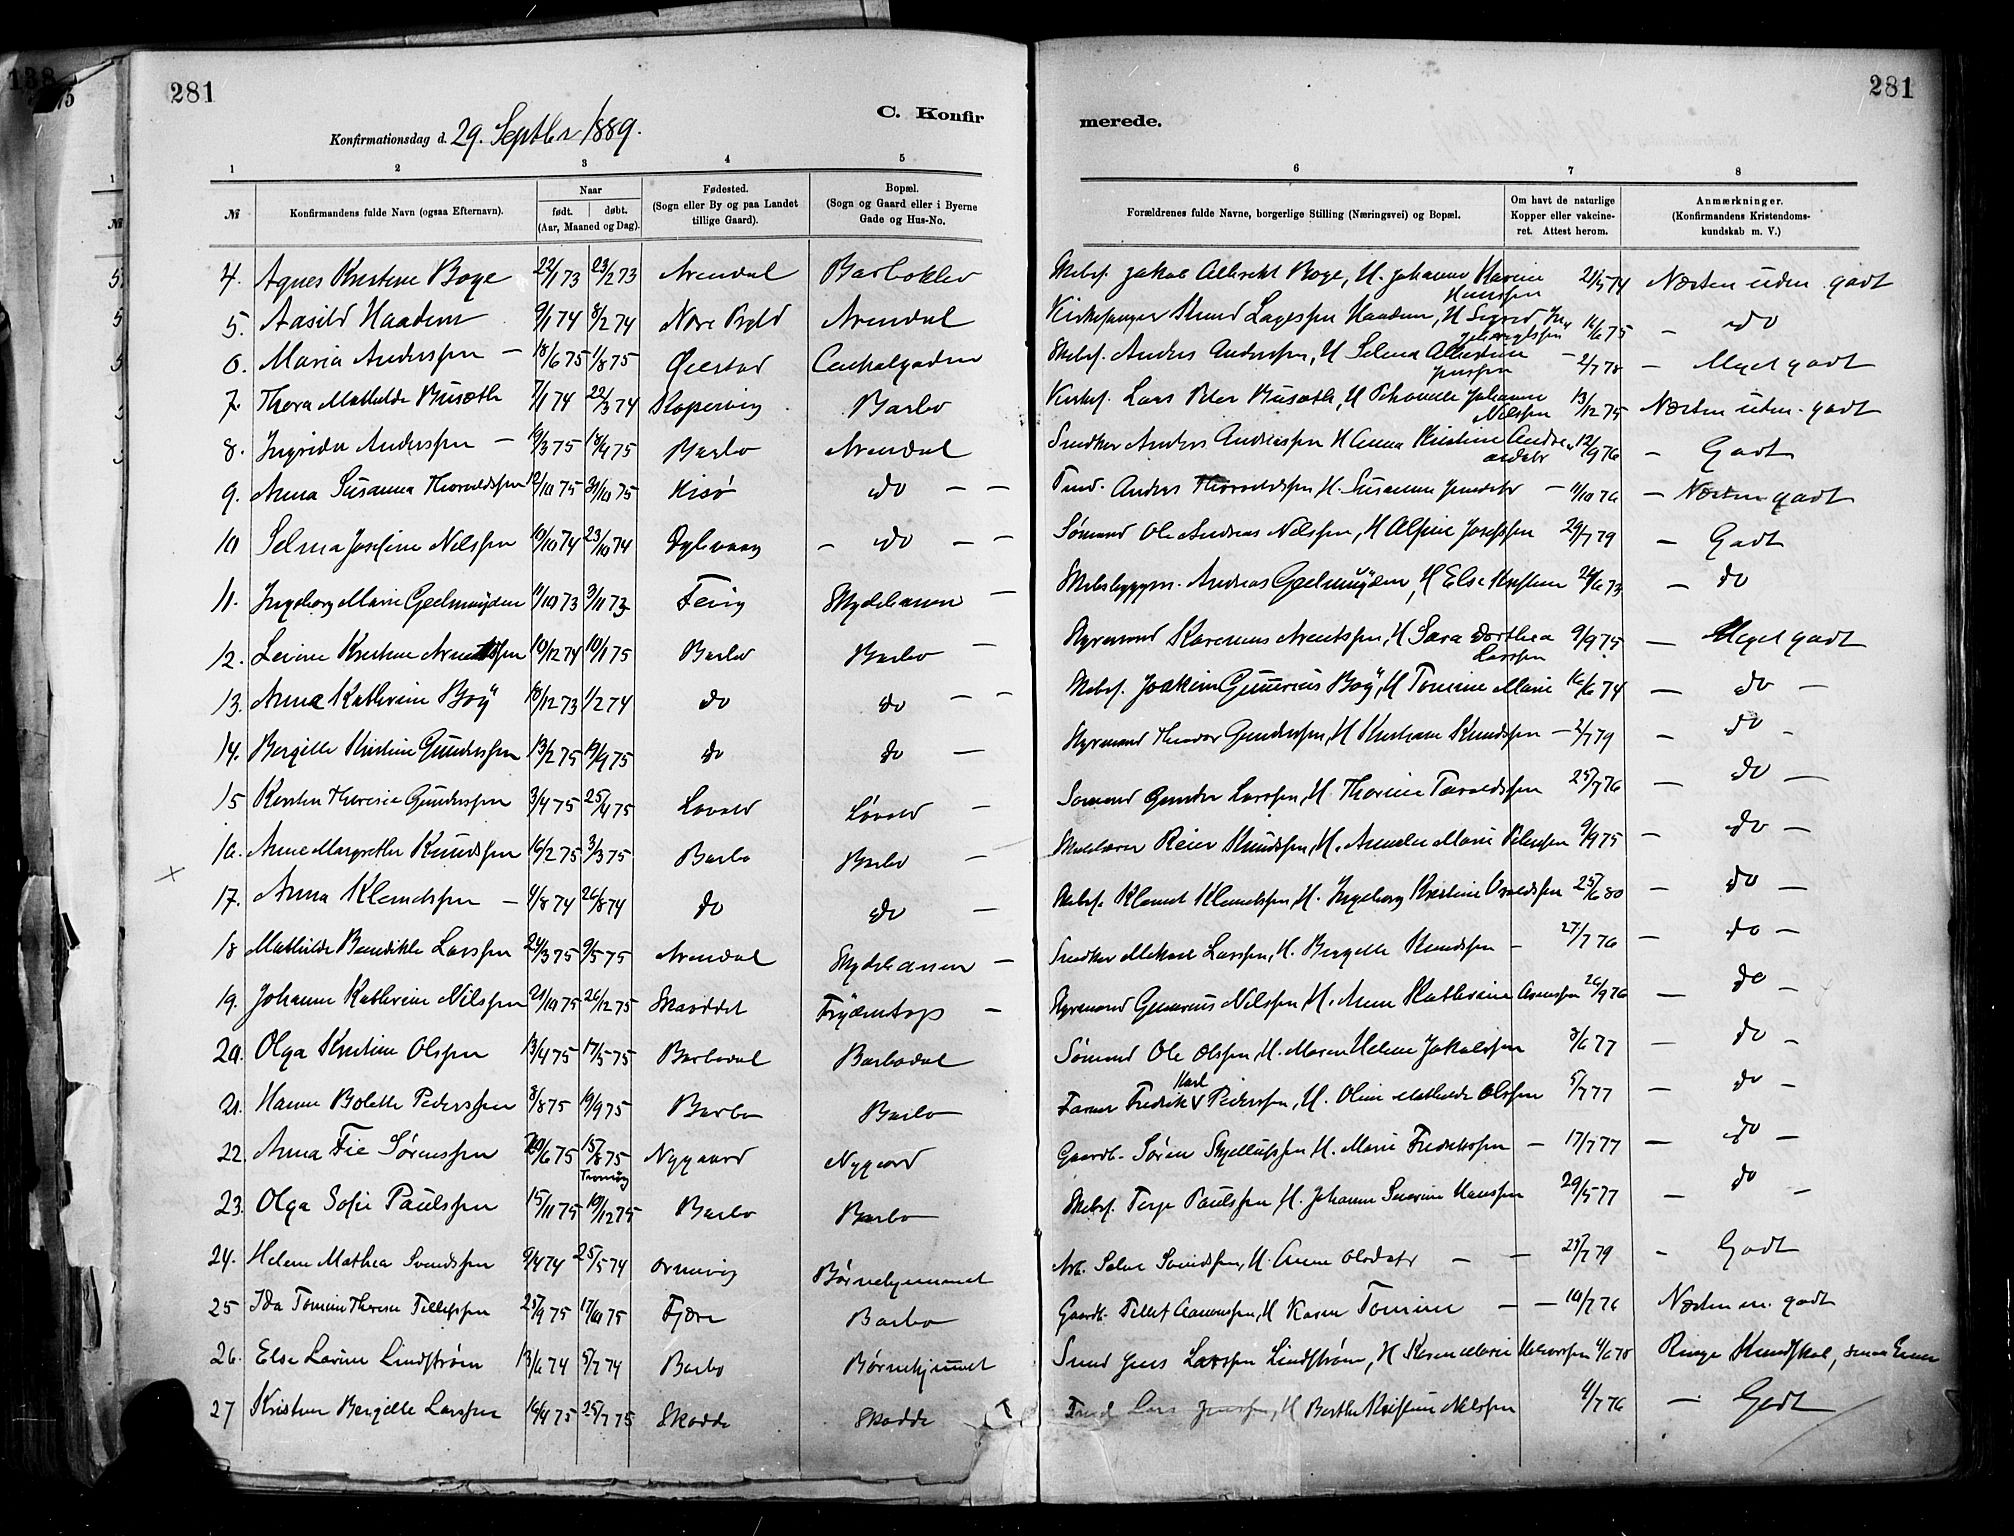 281
281
C. Konfir
merede.
Konfirmationsdag d. 29. Septbr 1889.
1 2 3 4 5 6 7 8
№
Konfirmandens fulde Navn (ogsaa Efternavn).
Naar
født. døbt.
(Aar, Maaned og Dag).
Fødested.
(Sogn eller By og paa Landet
tillige Gaard).
Bopæl.
(Sogn og Gaard eller i Byerne
Gade og Hus-No.
Forældrenes fulde Navne, borgerlige Stilling (Næringsvei) og Bopæl.
Om havt de naturlige
Kopper eller vakcine-
ret. Attest herom.
Anmærkninger.
(Konfirmandens Kristendoms-
kundskab m. V.)
4. Agnes Kristine Boye 22/1 73 23/2 73 Arendal Barboklev Skibsf. Jakob Albrekt Boye, H. Johanne Karine Hanssen 21/5 74 Næsten uden. godt
5. Aasild Haadem 9/1 74 8/2 74 Arendal Kirkesanger Haadem, H Sigrid 16/6 75 – do
6. Maria Anderssen – 18/6 75 1/8 75 Øiestad Centralgaden Skibsf. Anders Anderssen, H Selma Albertine Jenssen – 2/7 78 – Meget godt
7. Thora Mathilde Busæth 7/1 74 22/3 74 Kopervig Barbo Lars Peter Busæth, H Johanne Nilssen 13/12 75 Næsten uden. godt
8. Ingrida Anderssen – 19/3 75 18/4 75 Barbo Arendal Snedker Anders Andreassen H Anna Kristine 12/9 76 – Godt
9. Anna Susanna Thorvaldssen 12/10 75 31/10 75 Hisø do – – Andreas Thorvaldssen H. Susanne – 11/10 76 – Næsten godt
10 Selma Josefine Nilssen 10/10 74 23/10 74 Dybvaag – do – – Sømand Ole Andreas Nilssen, H Alfine Josefssen 29/7 79 – Godt
11. Ingeborg Marie Geelmuyden 11/10 73 3/11 73 Fevig Skytebanen – Skibsbyggm. Andreas Geelmuyden, H Else Kristine 24/6 73 – do
12. Levine Kristine Arentssen 10/12 74 10/1 75 Barbo Barbo – Styrmand Karenius Arentssen, H Sara Dorthea Larssen 9/9 75 – Meget godt
13. Anna Kathrine Boy 18/12 73 1/2 74 do do – – Skibsf. Joakim Gunerius Boy, H Tomine Marie 16/6 74 – do –
14. Bergitte Kristine Gunderssen 13/2 75 19/9 75 do do – Styrmand Theodor Gunderssen, H Kristiane Knudssen – 2/7 79 – do –
15 Kirsten Theresie Gunderssen 3/4 75 25/4 75 Løvold Løvold – Sømand Gunder Larssen, H. Thorine Taraldssen 25/7 76 – do –
16. Anne Margrethe Knudssen 16/2 75 3/3 75 Barbo Barbo – Reier Knudssen, H. Amalie Marie 9/9 75 – do –
17. Anna Klemetssen – 4/8 74 26/8 74 do do – Skibsf. Klemet Klemetssen, H. Ingeborg Kristine Osvaldssen 25/6 80 – do –
18 Mathilde Benedikte Larssen 24/3 75 9/5 75 Arendal Skytebanen – Snedker Mikael Larssen, H. Bergitte Knudssen – 27/7 76 – do –
19. Johanne Kathrine Nilssen 21/10 75 26/12 75 Skoddet Frydentop – Styrmand Gunerius Nilssen, H. Anne Kathrine 26/9 76 – do –
20. Olga Kristine Olssen 13/4 75 17/5 75 Barbodal Barbodal Sømand Ole Olssen, H. Maren Helene Jakobssen 3/6 77 – do –
21. Hanne Bolette Pederssen 8/8 75 19/9 75 Barbo Barbo Farver Fredrik Karl Pederssen, H. Oline Mathilde Olssen 5/7 77 – do –
22. Anna Fie Sørenssen 20/6 75 15/8 75 Tromøy Nygaard Nygaard Gaardb. Søren H. Marie Fredrikssen – 17/7 77 – do –
23. Olga Sofie Paulssen 15/11 75 19/12 75 Barbo Barbo Skibsf. Terje Paulssen H. Johanne Severine Hanssen 29/5 77 – do –
24. Helene Mathea Svendssen 9/4 74 25/5 74 Ornevig Børnehjemmet Arb. Salve Svendssen, H. Anne Olsdatr – – 25/7 79 – Godt
25 Ida Tomine Therese Tellefssen 25/9 75 17/10 75 Fjære Barbo Gaardb. Tellef Aanenssen, H Karen Tomine – – 10/7 76 Næsten m. godt
26. Else Lovine Lindstrøm 13/6 74 5/7 74 Barbo Børnehjemmet Smed Jens Larssen Lindstrøm, H Karen Marie 4/6 78 Ringe Kundskab,
27 Kristine Bergitte Larssen 16/4 75 25/7 75 Skodde Skodde Lars Jenssen, H Berthe Kristine Nilssen 4/7 76 – Godt